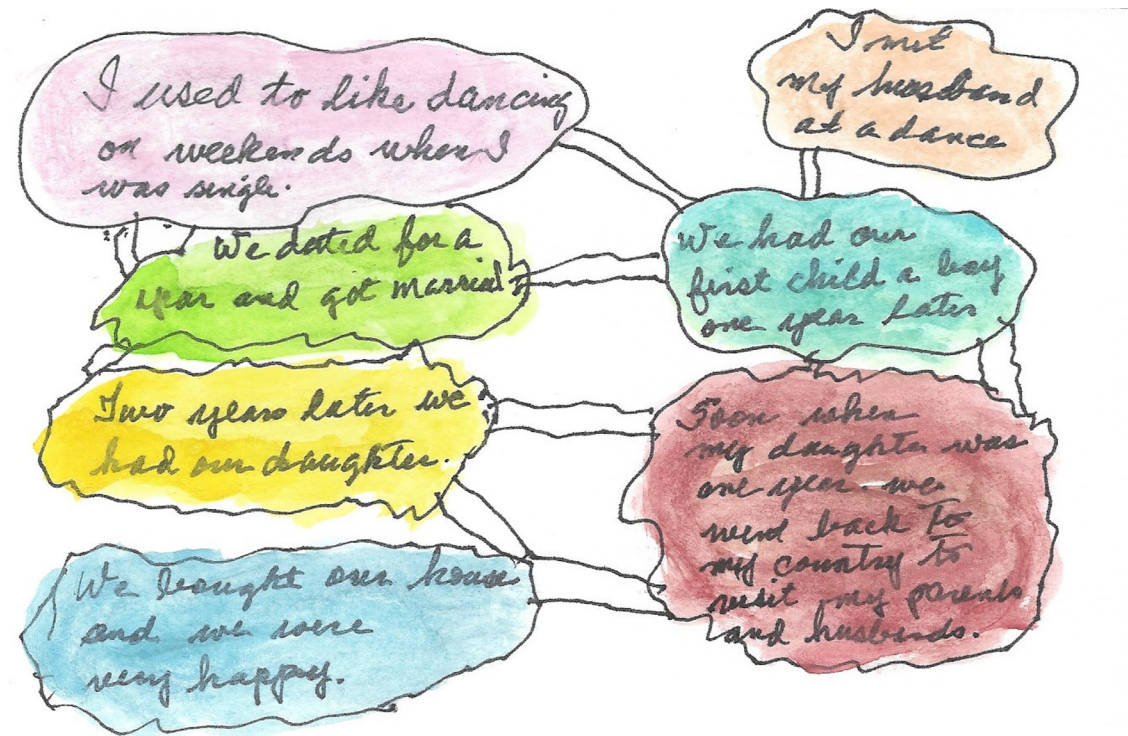 I used to like dancing
on weekends when I
was single.
I met
my husband
at a dance
We dated for a
year and got married
We had our
first child a boy
one year later
Two years later we
had our daughter.
Soon when
my daughter was
one year we
went back to
my country to
visit my parents
and husbands.
We bought our house
and we were
very happy.